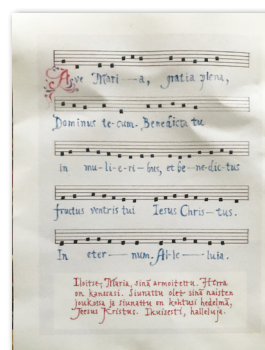 Ave Mari-a, gratia plena,
Dominus te-cum. Benedicta tu
in mu-li-e-ri-bus, et be-ne-dic-tus
fructus ventris tui Iesus Chris-tus.
In eter-num. Al-le-luia.
Iloitse, Maria, sinä armoitettu. Herra
on kanssasi. Siunattu olet sinä naisten
joukossa ja siunattu on kohtusi hedelmä,
Jeesus Kristus. Ikuisesti, halleluja.